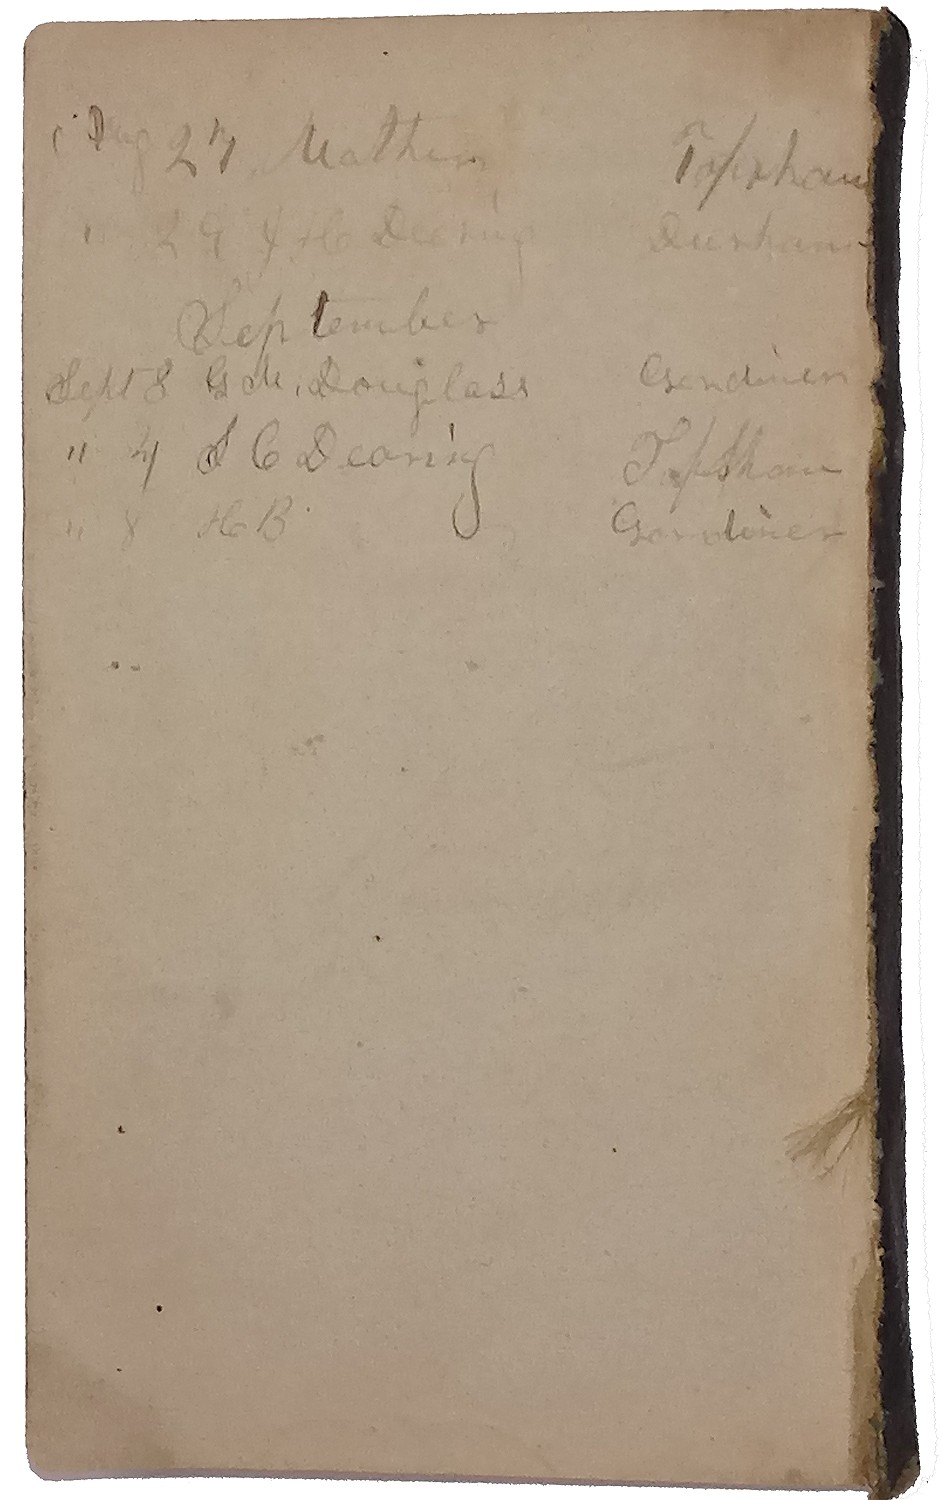 Aug 27 Mather Topsham
" 29 J H Dearing Durham
September
Sept 8 G M. Douglass Gardiner
" 4 S C Dearing Topsham
" 8 H B Gardiner